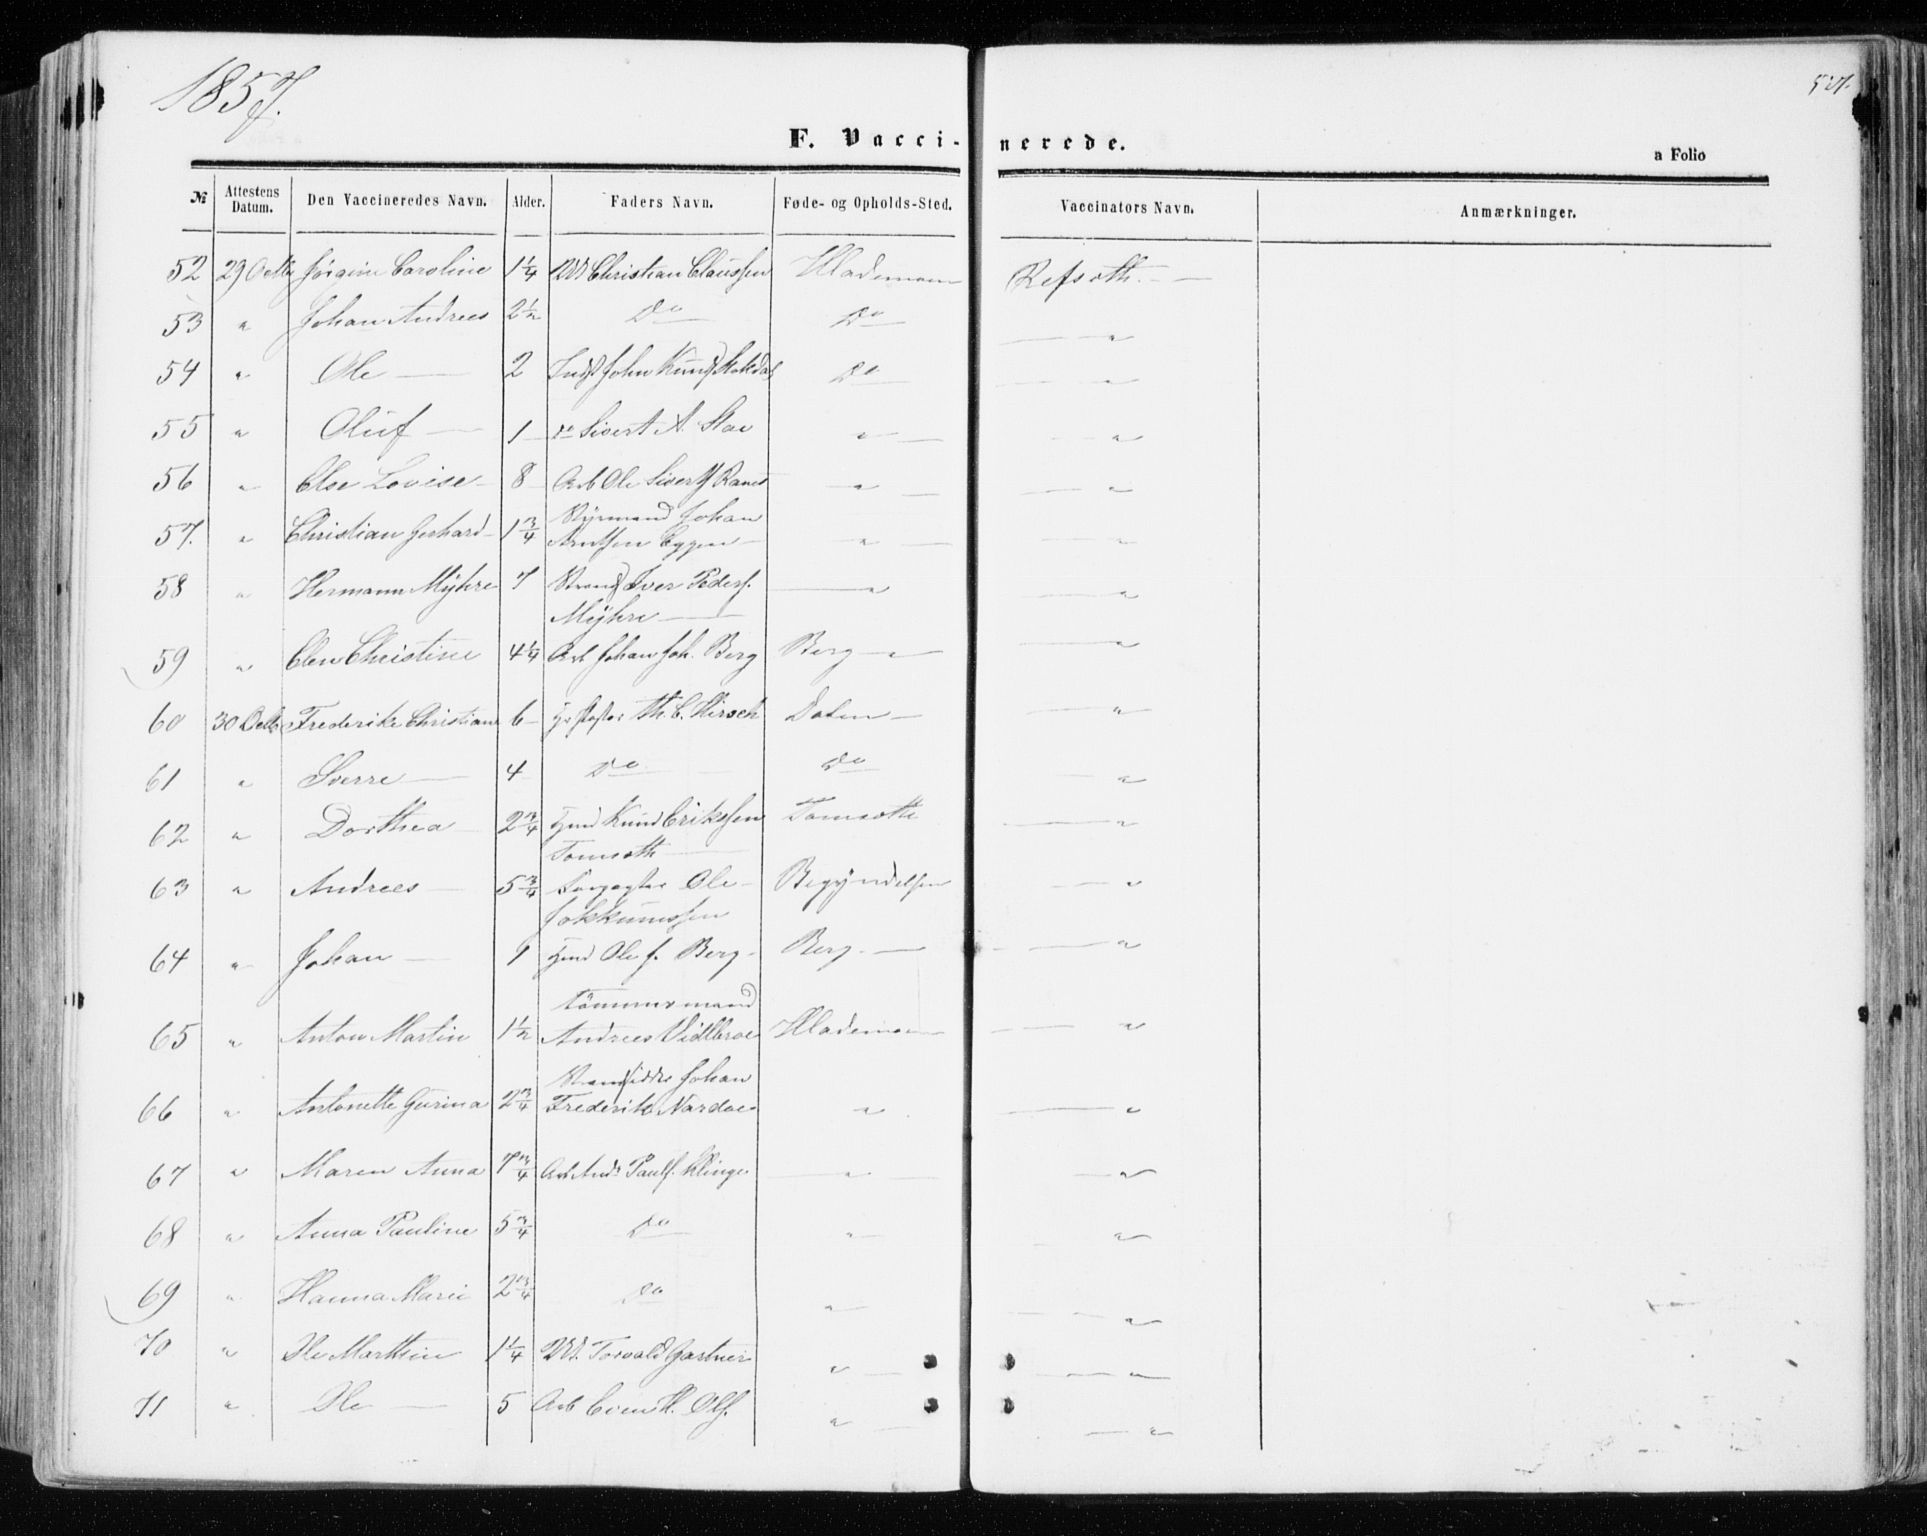 1857.
527.
F. Vaccinerede.
a Folio
№ Attestens Datum. Den Vaccineredes Navn. Alder. Faders Navn. Føde- og Opholds-Sted. Vaccinators Navn. Anmærkninger.
52 29 Octb Jörgine Caroline 1 1/4 Christian Claussen Hlademoen Refsoth.
53 " Johan Andreas 2 1/2 Do Do "
54 " Ole 2 John Do "
55 " Oluf 1 do Sivert A. Stav " "
56 " Else Lovise 8 Arb Ole " "
57. " Christian Gerhard 1 3/4 Styrmand Johan
Arntsen Eggen " "
58 " Hermann Mÿhre 7 Strands Iver Peders.
Mÿhre " "
59 " Elen Christine 4 1/4 Arb Johan Joh. Berg Berg "
60 30 Octb Frederike Christiane 6 Th. C. Hirsch Dalen "
61 " Sverre 4 Do Do "
62 " Dorthea 2 3/4 Gmd Knud Erikssen
Tomsoth "
63 " Andreas 5 3/4 Ole
Jokkumssen Begÿndelsen "
64 " Johan 1 Gmd Ole J. Berg Berg "
65 " Anton Martin 1 1/2 Tömmermand
Andreas Hlademoen "
66 " Antonette Gurina 2 3/4 Strandsidder Johan
Frederik " "
67 " Maren Anna 7 3/4 Arb Ands Pauls. Klinge " "
68 " Anna Pauline 5 3/4 Do " "
69 " Hanna Marie 2 3/4 Do " "
70 " Ole 1 1/4 Torvald Gartner " "
71 " Ole 5 Arb Even H. Ols. " "